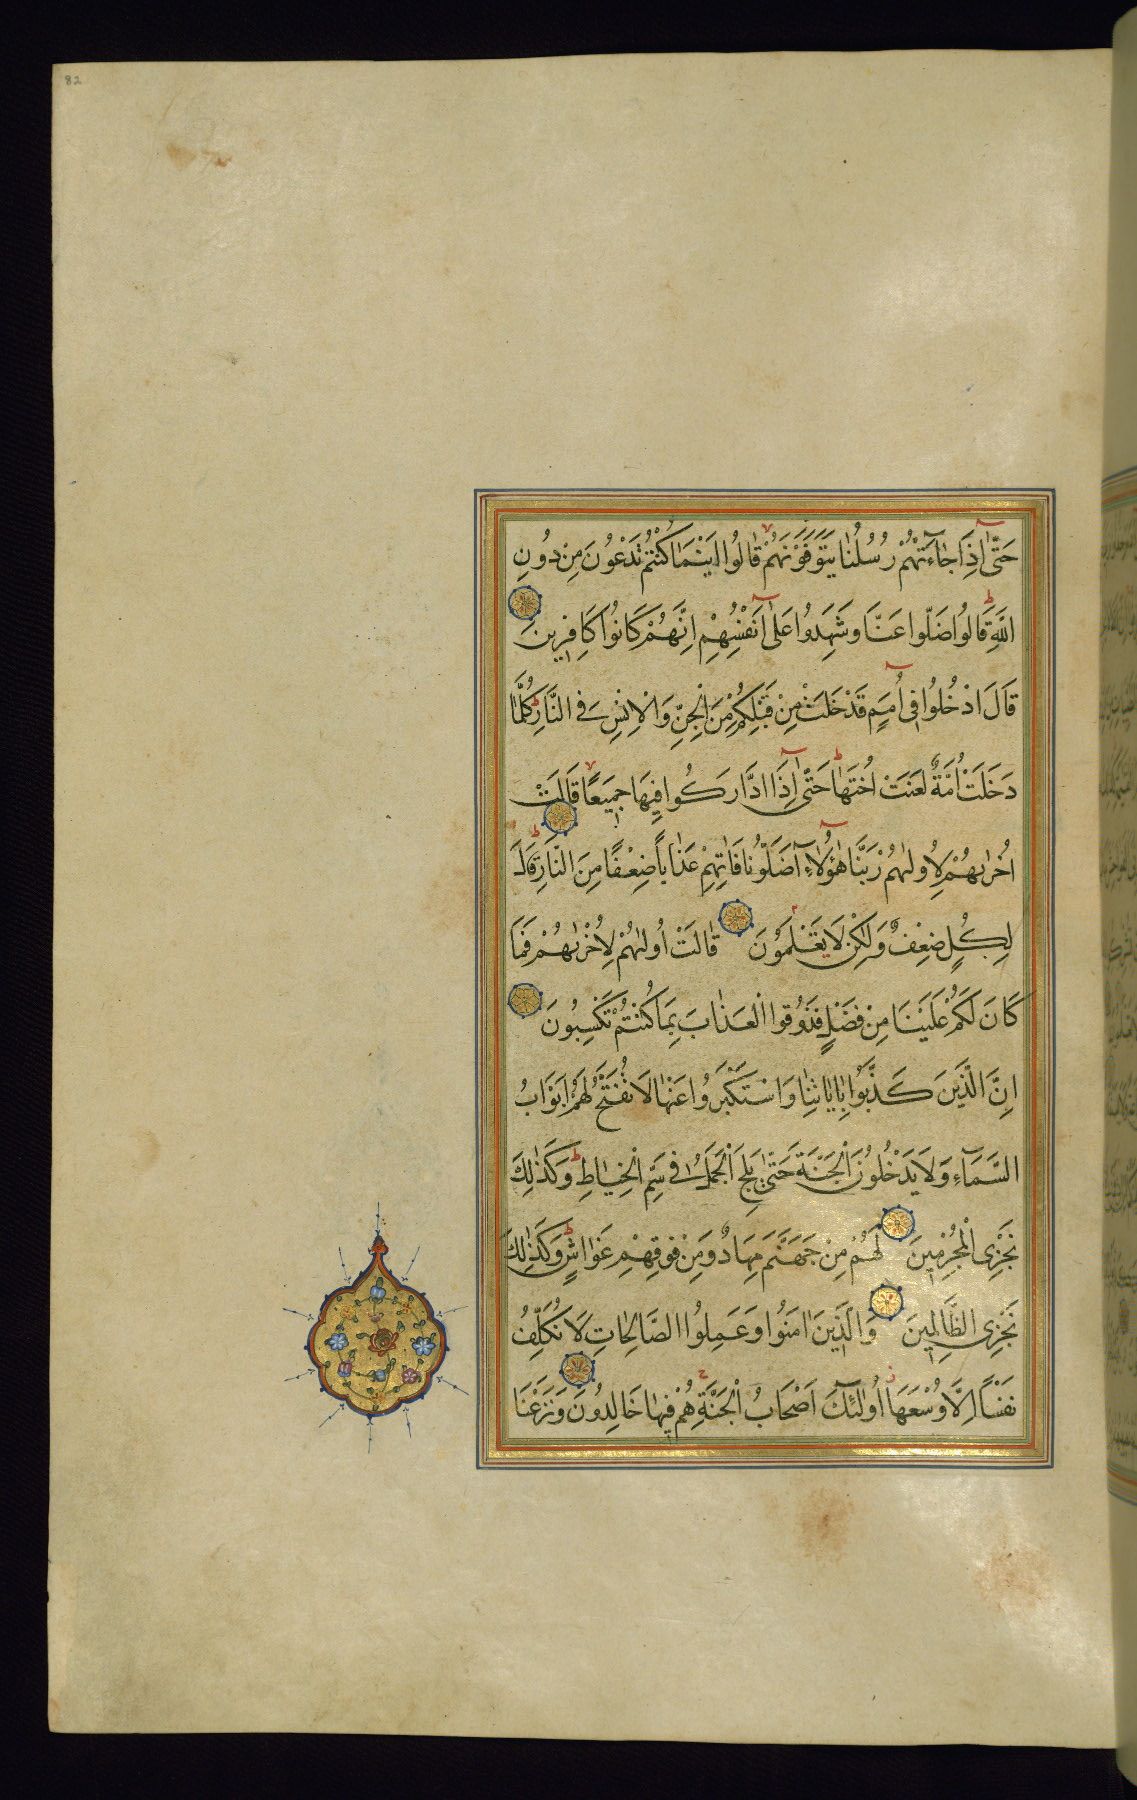 82
حَتّٰى اِذَا جَاءَتْهُمْ رُسُلُنَا يَتَوَفَّوْنَهُمْ قَالُوا اَيْنَمَا كُنْتُمْ تَدْعُونَ مِنْ دُونِ
اللّٰهِ قَالُوا ضَلّوا عَنَّا وَشَهِدُوا عَلٰى اَنْفُسِهِمْ اِنَّهُمْ كَانُوا كَافِرِينَ
قَالَ ادْخُلُوا فِى اُمَمٍ قَدْ خَلَتْ مِنْ قَبْلِكُمْ مِنَ الْجِنِّ وَالْاِنْسِ فِى النَّارِ كُلَّمَا
دَخَلَتْ اُمَّةٌ لَعَنَتْ اُخْتَهَا حَتّٰى اِذَا ادَّارَكُوا فِيهَا جَمِيعًا قَالَتْ
اُخْرٰيهُمْ لِاُولٰيهُمْ رَبَّنَا هٰؤُلَاءِ اَضَلُّونَا فَاٰتِهِمْ عَذَابًا ضِعْفًا مِنَ النَّارِ قَالَ
لِكُلٍّ ضِعْفٌ وَلٰكِنْ لَا يَعْلَمُونَ قَالَتْ اُولٰيهُمْ لِاُخْرٰيهُمْ فَمَا
كَانَ لَكُمْ عَلَيْنَا مِنْ فَضْلٍ فَذُوقُوا الْعَذَابَ بِمَا كُنْتُمْ تَكْسِبُونَ
اِنَّ الَّذِينَ كَذَّبُوا بِاٰيَاتِنَا وَاسْتَكْبَرُوا عَنْهَا لَا تُفَتَّحُ لَهُمْ اَبْوَابُ
السَّمَاءِ وَلَا يَدْخُلُونَ الْجَنَّةَ حَتّٰى يَلِجَ الْجَمَلُ فِى سَمِّ الْخِيَاطِ وَكَذٰلِكَ
نَجْزِى الْمُجْرِمِينَ لَهُمْ مِنْ جَهَنَّمَ مِهَادٌ وَمِنْ فَوْقِهِمْ غَوَاشٍ وَكَذٰلِكَ
نَجْزِى الظَّالِمِينَ وَالَّذِينَ اٰمَنُوا وَعَمِلُوا الصَّالِحَاتِ لَا نُكَلِّفُ
نَفْسًا اِلَّا وُسْعَهَا اُولٰئِكَ اَصْحَابُ الْجَنَّةِ هُمْ فِيهَا خَالِدُونَ وَنَزَعْنَا